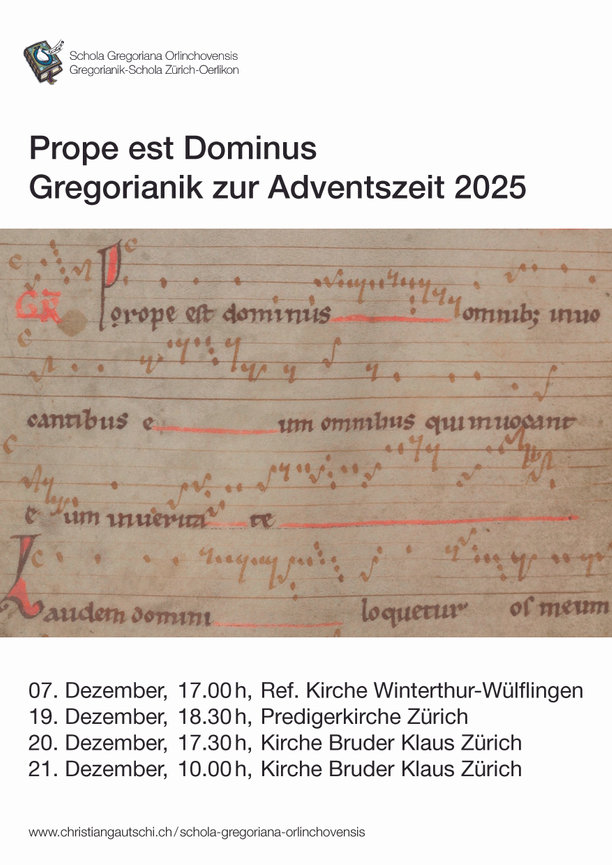 Schola Gregoriana Orlinchovensis
Gregorianik-Schola Zürich-Oerlikon
Prope est Dominus
Gregorianik zur Adventszeit 2025
GR
Prope est dominus omnib; inuo
cantibus e um omnibus qui inuocant
e um in uerita te
Laudem domini loquetur os meum
07. Dezember, 17.00 h, Ref. Kirche Winterthur-Wülflingen
19. Dezember, 18.30 h, Predigerkirche Zürich
20. Dezember, 17.30 h, Kirche Bruder Klaus Zürich
21. Dezember, 10.00 h, Kirche Bruder Klaus Zürich
www.christiangautschi.ch/schola-gregoriana-orlinchovensis